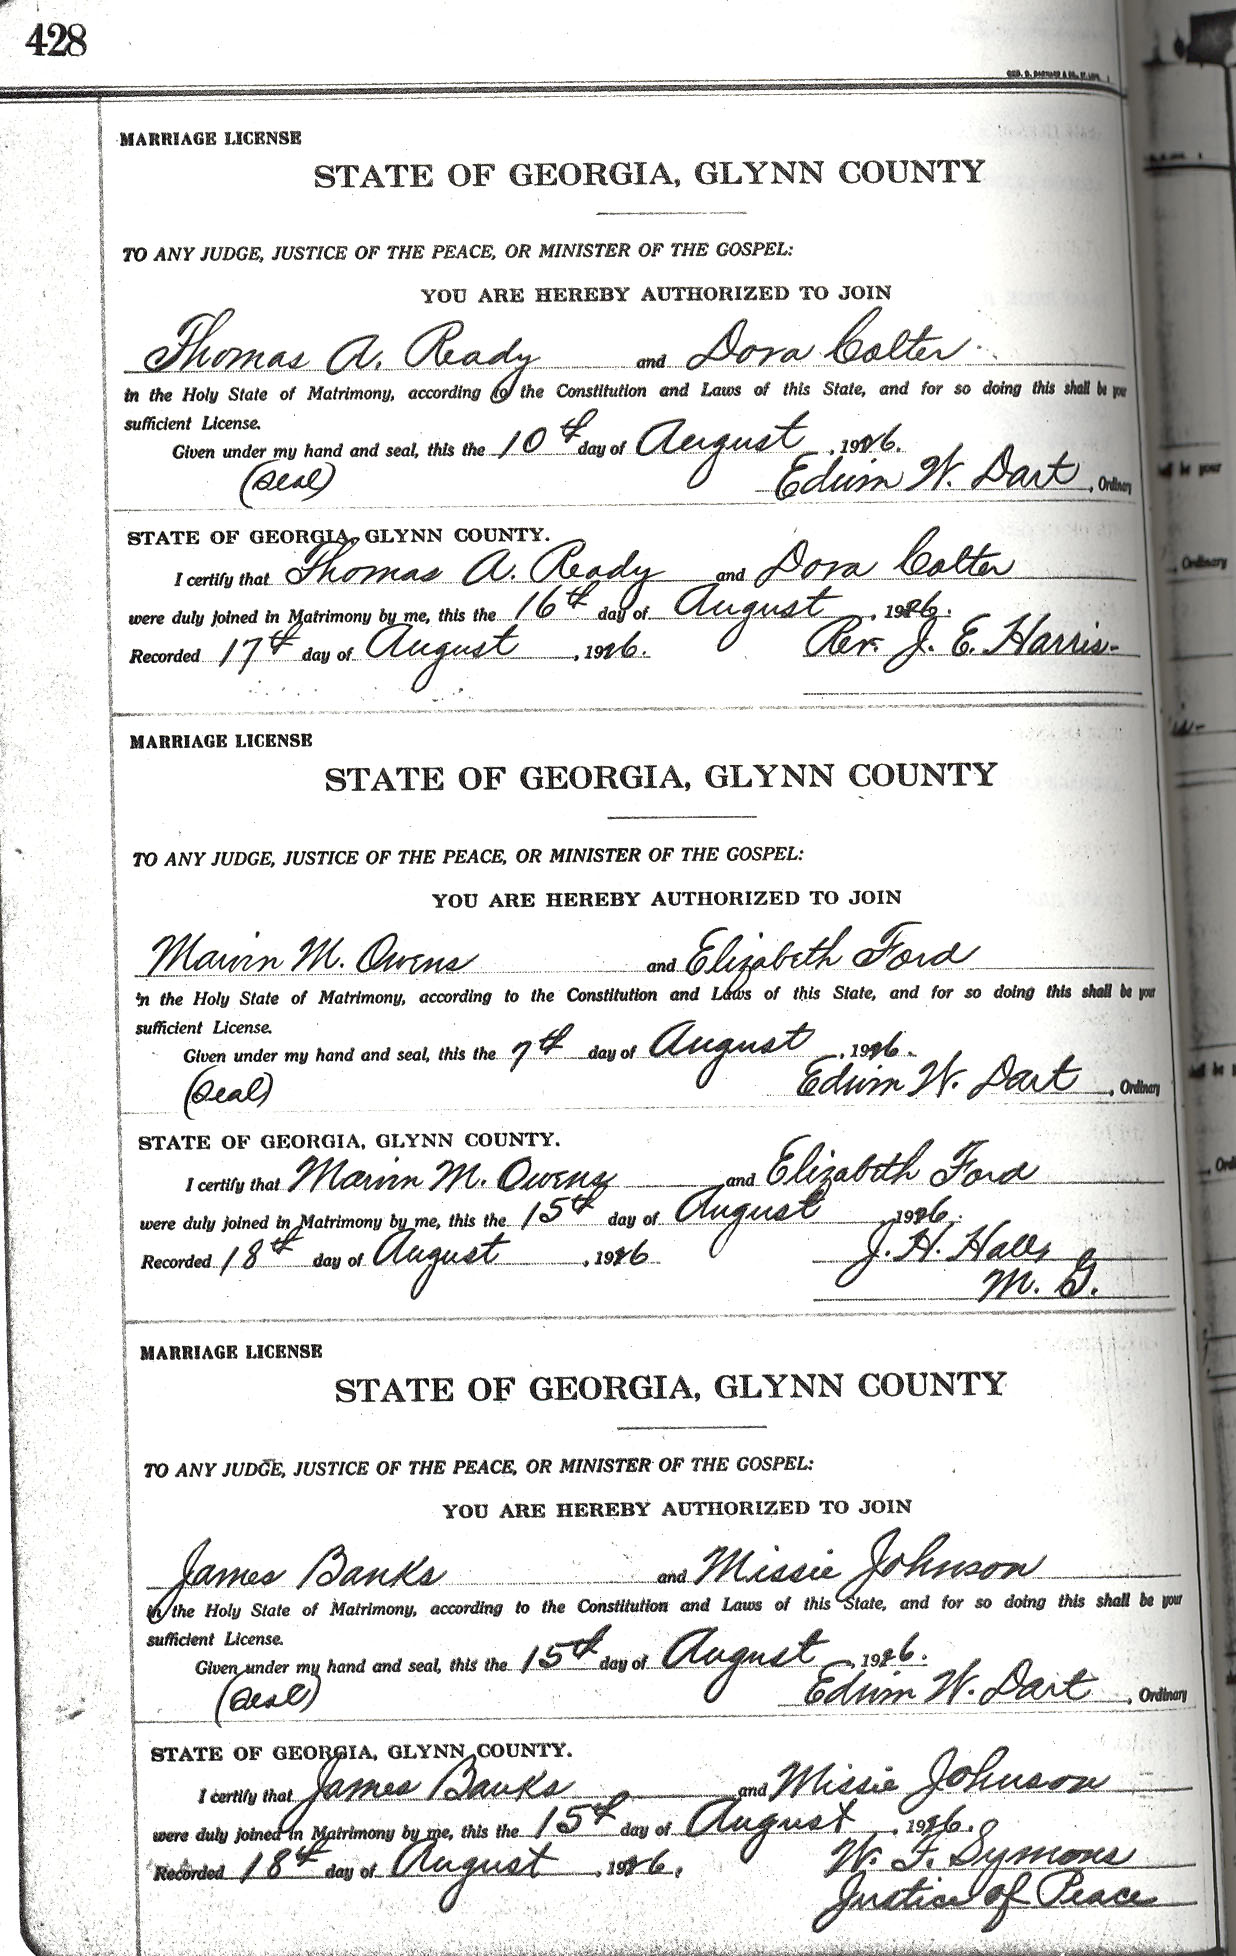 428
GEO. D. BARNARD & CO., ST. LOUIS
MARRIAGE LICENSE
STATE OF GEORGIA, GLYNN COUNTY
TO ANY JUDGE, JUSTICE OF THE PEACE, OR MINISTER OF THE GOSPEL:
YOU ARE HEREBY AUTHORIZED TO JOIN
Thomas A. Ready and Dora Colter
in the Holy State of Matrimony, according to the Constitution and Laws of this State, and for so doing this shall be your
sufficient License.
Given under my hand and seal, this the 10th day of August, 1926.
(Seal) Edwin W. Dart, Ordinary
STATE OF GEORGIA, GLYNN COUNTY.
I certify that Thomas A. Ready and Dora Colter
were duly joined in Matrimony by me, this the 16th day of August, 1926.
Recorded 17th day of August, 1926. Rev. J. E. Harris
MARRIAGE LICENSE
STATE OF GEORGIA, GLYNN COUNTY
TO ANY JUDGE, JUSTICE OF THE PEACE, OR MINISTER OF THE GOSPEL:
YOU ARE HEREBY AUTHORIZED TO JOIN
Marvin M. Owens and Elizabeth Ford
in the Holy State of Matrimony, according to the Constitution and Laws of this State, and for so doing this shall be your
sufficient License.
Given under my hand and seal, this the 7th day of August, 1926.
(Seal) Edwin W. Dart, Ordinary
STATE OF GEORGIA, GLYNN COUNTY.
I certify that Marvin M. Owens and Elizabeth Ford
were duly joined in Matrimony by me, this the 15th day of August, 1926.
Recorded 18th day of August, 1926 J. H.
M. G.
MARRIAGE LICENSE
STATE OF GEORGIA, GLYNN COUNTY
TO ANY JUDGE, JUSTICE OF THE PEACE, OR MINISTER OF THE GOSPEL:
YOU ARE HEREBY AUTHORIZED TO JOIN
James Banks and Missie Johnson
in the Holy State of Matrimony, according to the Constitution and Laws of this State, and for so doing this shall be your
sufficient License.
Given under my hand and seal, this the 15th day of August, 1926.
(Seal) Edwin W. Dart, Ordinary
STATE OF GEORGIA, GLYNN COUNTY.
I certify that James Banks and Missie Johnson
were duly joined in Matrimony by me, this the 15th day of August, 1926.
Recorded 18th day of August, 1926. W. F. Symons
Justice of Peace